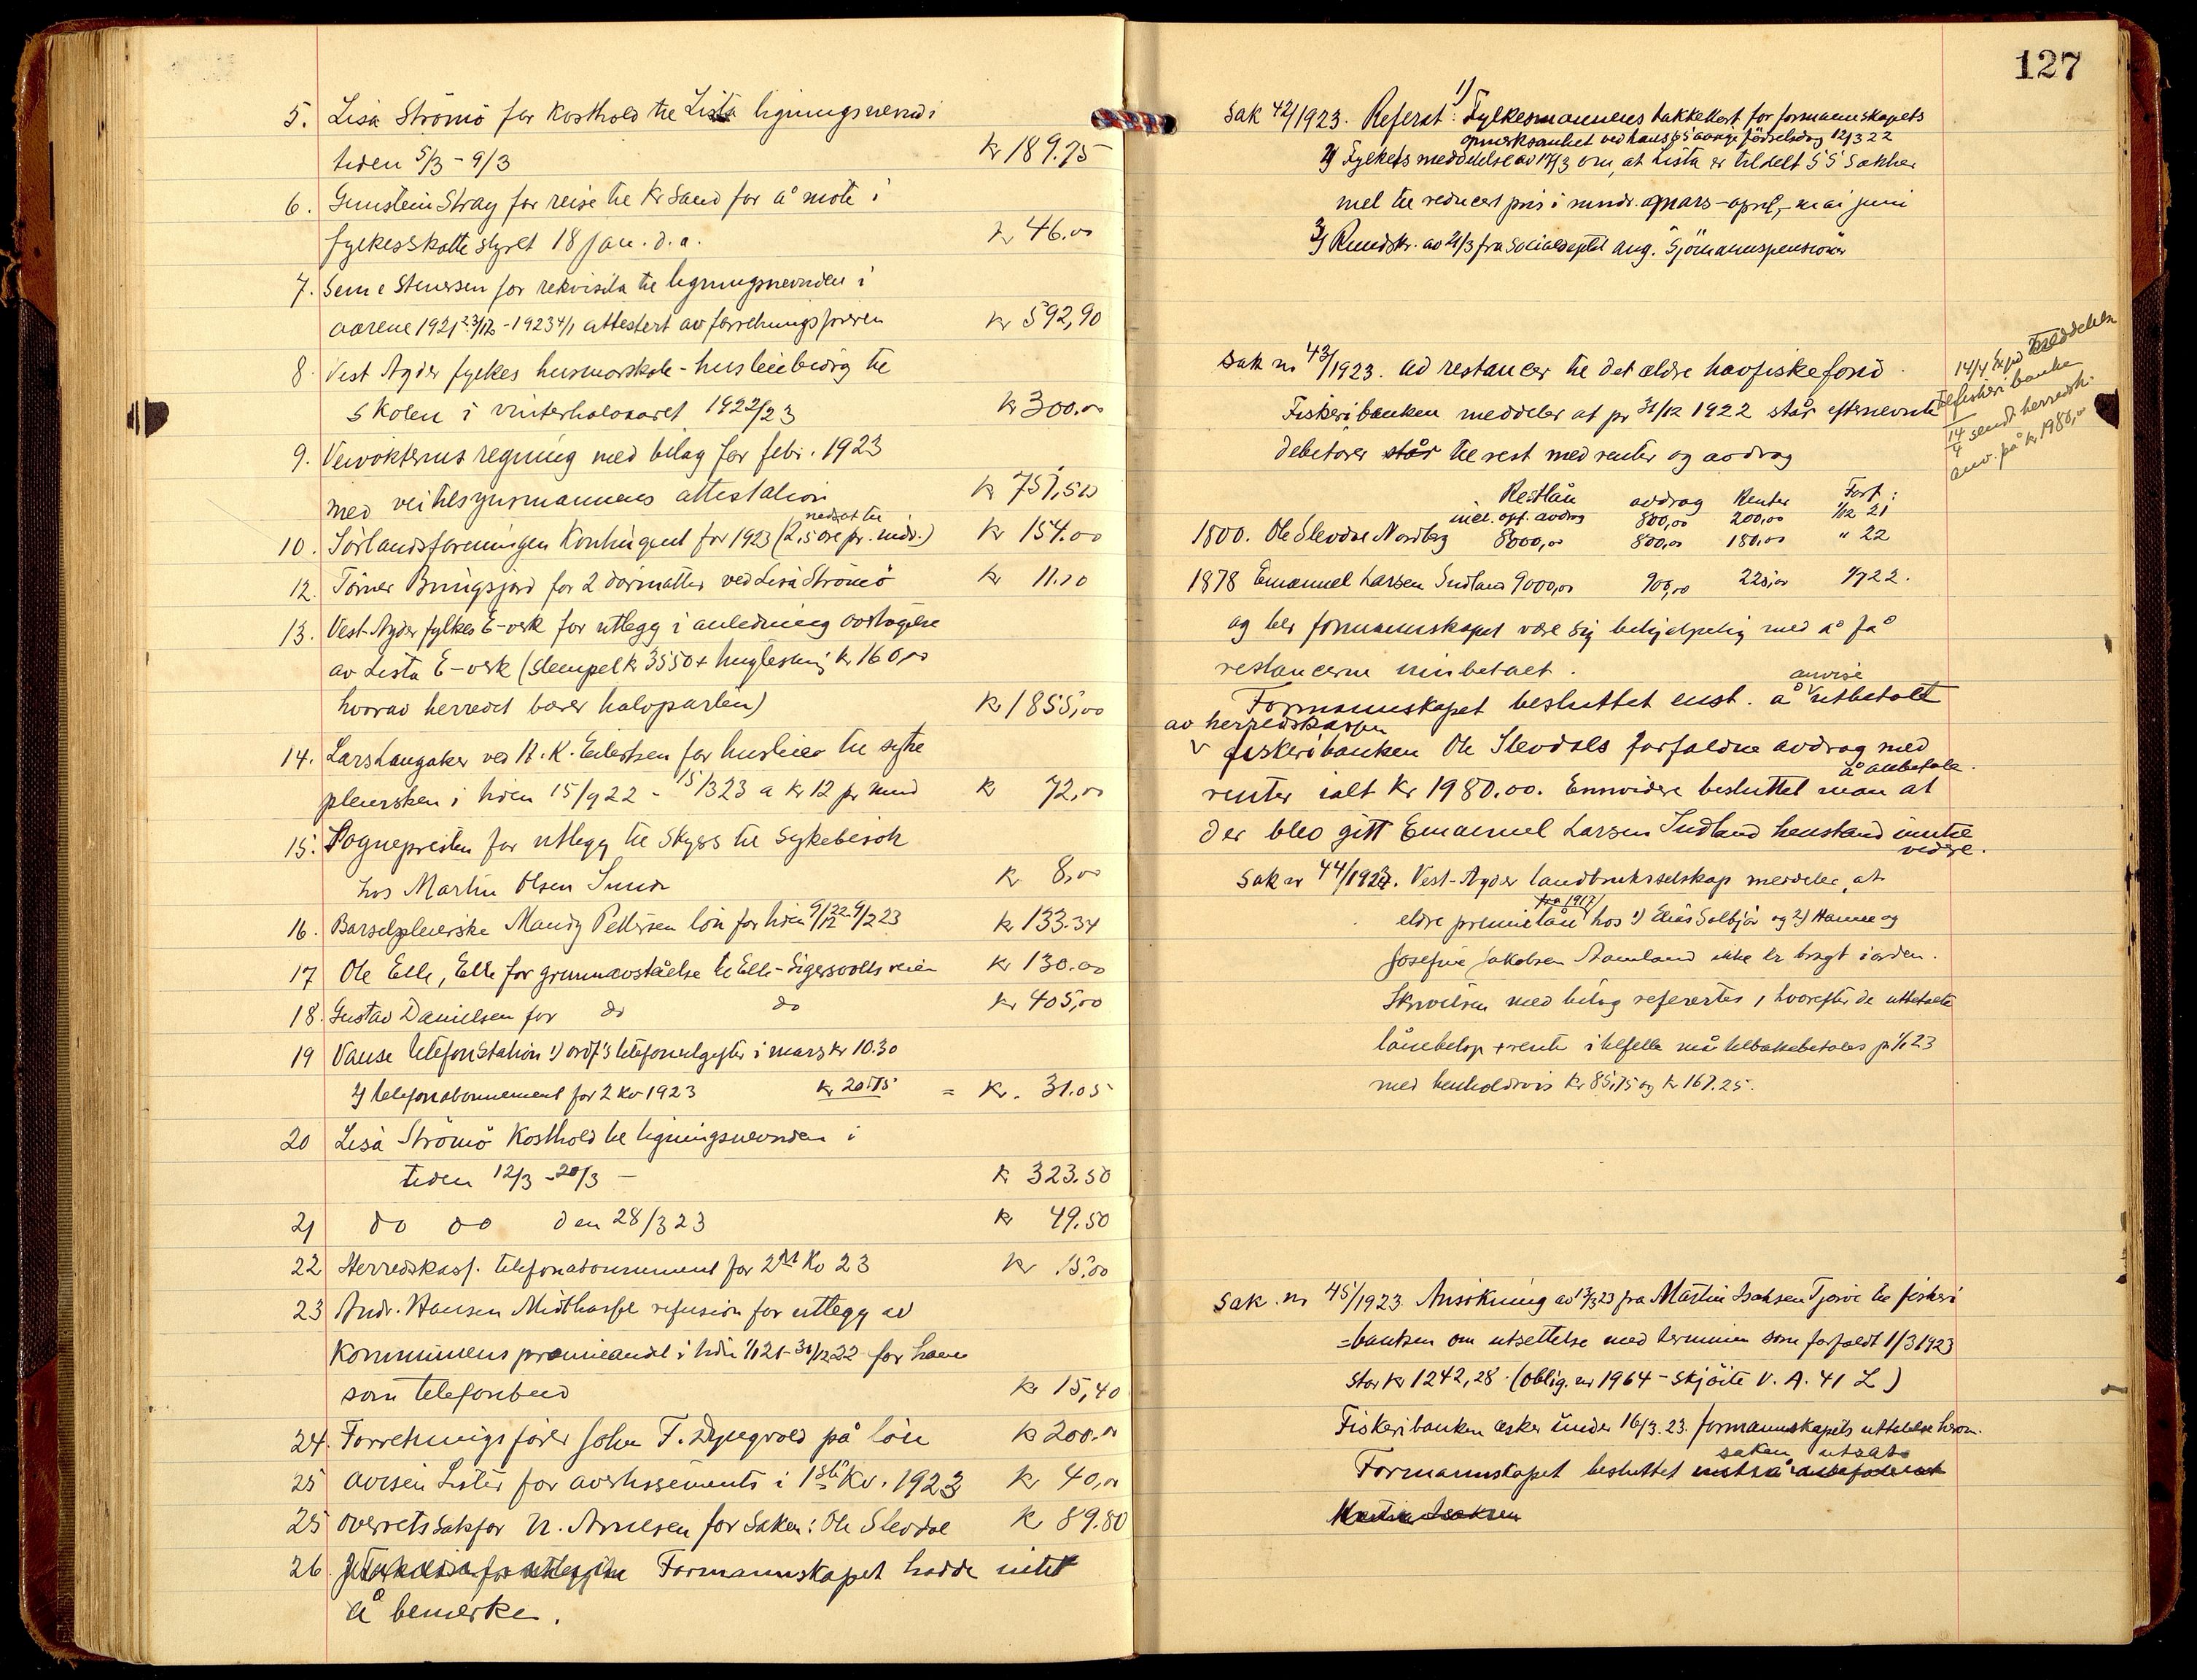 5. Lisa Strömö for Kosthold til Lista ligningsnevnd i
tiden 5/3 - 9/3 kr 189.75
6. Gunstein Stray for reise til Kr Sand for å möte i
fylkesskattestyret 18 jan. d.a. kr 46.00
7. Sem & Stenersen for rekvisita til ligningsnevnden i
aarene 1921 23/12 - 1923 4/1 attestert av forretningsföreren kr 592,90
8. Vest Agder fylkes husmorskole - husleiebidrag til
skolen i vinterhalvaaret 1922/23 kr 300.00
9. Veivokternes regning med bilag for febr. 1923
med veitilsynsmannens attestation kr 751,50
nedsat til
10. Sörlandsforeningen Kontingent for 1923 (2,5 öre pr. indv.) kr 154.00
12. Törner Bringsjord for 2 dörmatter ved Lisa Strömö kr 11.20
13. Vest-Agder fylkes E-verk for utlegg i anledning overtagelse
av Lista E-verk (stempel kr 3550 + tinglesning kr 160,00
hvorav herredet bærer halvparten) kr 1855,00
14. Lars Langaker ved N. K. Eilertsen for husleie til syke
pleiersken i tiden 15/9 22 - 15/3 23 a kr 12 pr mnd kr 72,00
15. Sognepresten for utlegg til skyss til sykebesök
hos Martin Olsen Sunde kr 8,00
16. Barselpleierske Mandy Pettersen lön for tiden 9/12 22 - 9/2 23 kr 133.34
17 Ole Elle, Elle for grunnavståelse til Elle-Sigersvolls veien kr 130.00
18. Gustav Danielsen for do do kr 405,00
19 Vanse telefonstation 1) ordf's telefonutgifter i mars kr 10.30
2) telefonabonnement for 2 kv 1923 kr 20.75 = kr. 31.05
20 Lisa Strömö Kosthold til ligningsnevnden i
tiden 12/3 - 20/3 - kr 323.50
21 do do den 28/3 23 kr 49.50
22 Herredskass. telefonabonnement for 2det Kv 23 kr 15.00
23 Andr. Hansen Midthassel refusion for utlegg av
kommunens præmieandel i tiden 1/1 21 - 31/12 22 for ham
som telefonbud kr 15,40
24. Forretningsförer John F. Dyngvold på lön kr 200.00
25 Avisen Lister for avertissements i 1ste Kv. 1923 kr 40,00
25 Overretssakför N. Arnesen for saken: Ole Slevdal kr 89.80
26. Formannskapet hadde intet
å bemerke.
127
Sak 42/1923. Referat: 1) Fylkesmannens takkekort for formannskapets
opmerksomhet ved hans 65 aarige födselsdag 12/3 22
2) Fylkets meddelelse av 17/3 om, at Lista er tildelt 55 sekker
mel til reducert pris i mndr. mars - april, - mai juni
3) Rundskr. av 21/3 fra Socialdeptet ang. Sjömannspensioner
Sak nr 43/1923. ad restancer til det eldre havfiskefond
Fiskeribanken meddeler at pr 31/12 1922 står efternevnte
debitorer står til rest med renter og avdrag
14/4 Exped meddelelse
til fiskeribanken
14/4 sendt herredsk.
anv. på kr 1980,00
Restlån avdrag Renter Forf:
incl. opf. avdrag 800,00 200,00 1/12 21
1800. Ole Slevdal Nordberg 8000,00 800,00 180,00 " 22
1878 Emanuel Larsen Indland 9000,00 900,00 225,00 1/9 22.
og ber formannskapet være sig behjelpelig med å få
restancerne innbetalt.
anvise
Formannskapet besluttet enst. å utbetalt
av herredskassen
fiskeribanken Ole Slevdals forfaldne avdrag med
å anbefale
renter ialt kr 1980.00. Ennvidere besluttet man at
der blev gitt Emanuel Larsen Indland henstand inntil
videre.
Sak nr 44/1923. Vest-Agder landbruksselskap meddeler, at
fra 1917
eldre premielån hos 1) Elias Solbjör og 2) Hanne og
Josefine Jakobsen Aamland ikke er bragt i orden.
Skrivelsen med bilag refereertes, hvorefter de utbetalte
lånebelöp + rente i tilfelle må tilbakebetales pr 1/6 23
med henholdsvis kr 85,75 og kr 167.25.
Sak. nr 45/1923. Ansökning av 13/3 23 fra Martin Isaksen Tjörve til fiskeri
=banken om utsettelse med termin som forfaldt 1/3 1923
stor kr 1242,28. (oblig. nr 1964 - Sköite V. A. 41 L)
Fiskeribanken æsker under 16/3. 23. formannskapets uttalelse herom.
saken utsat
Formannskapet besluttet enst. å anbefale at
Martin Isaksen